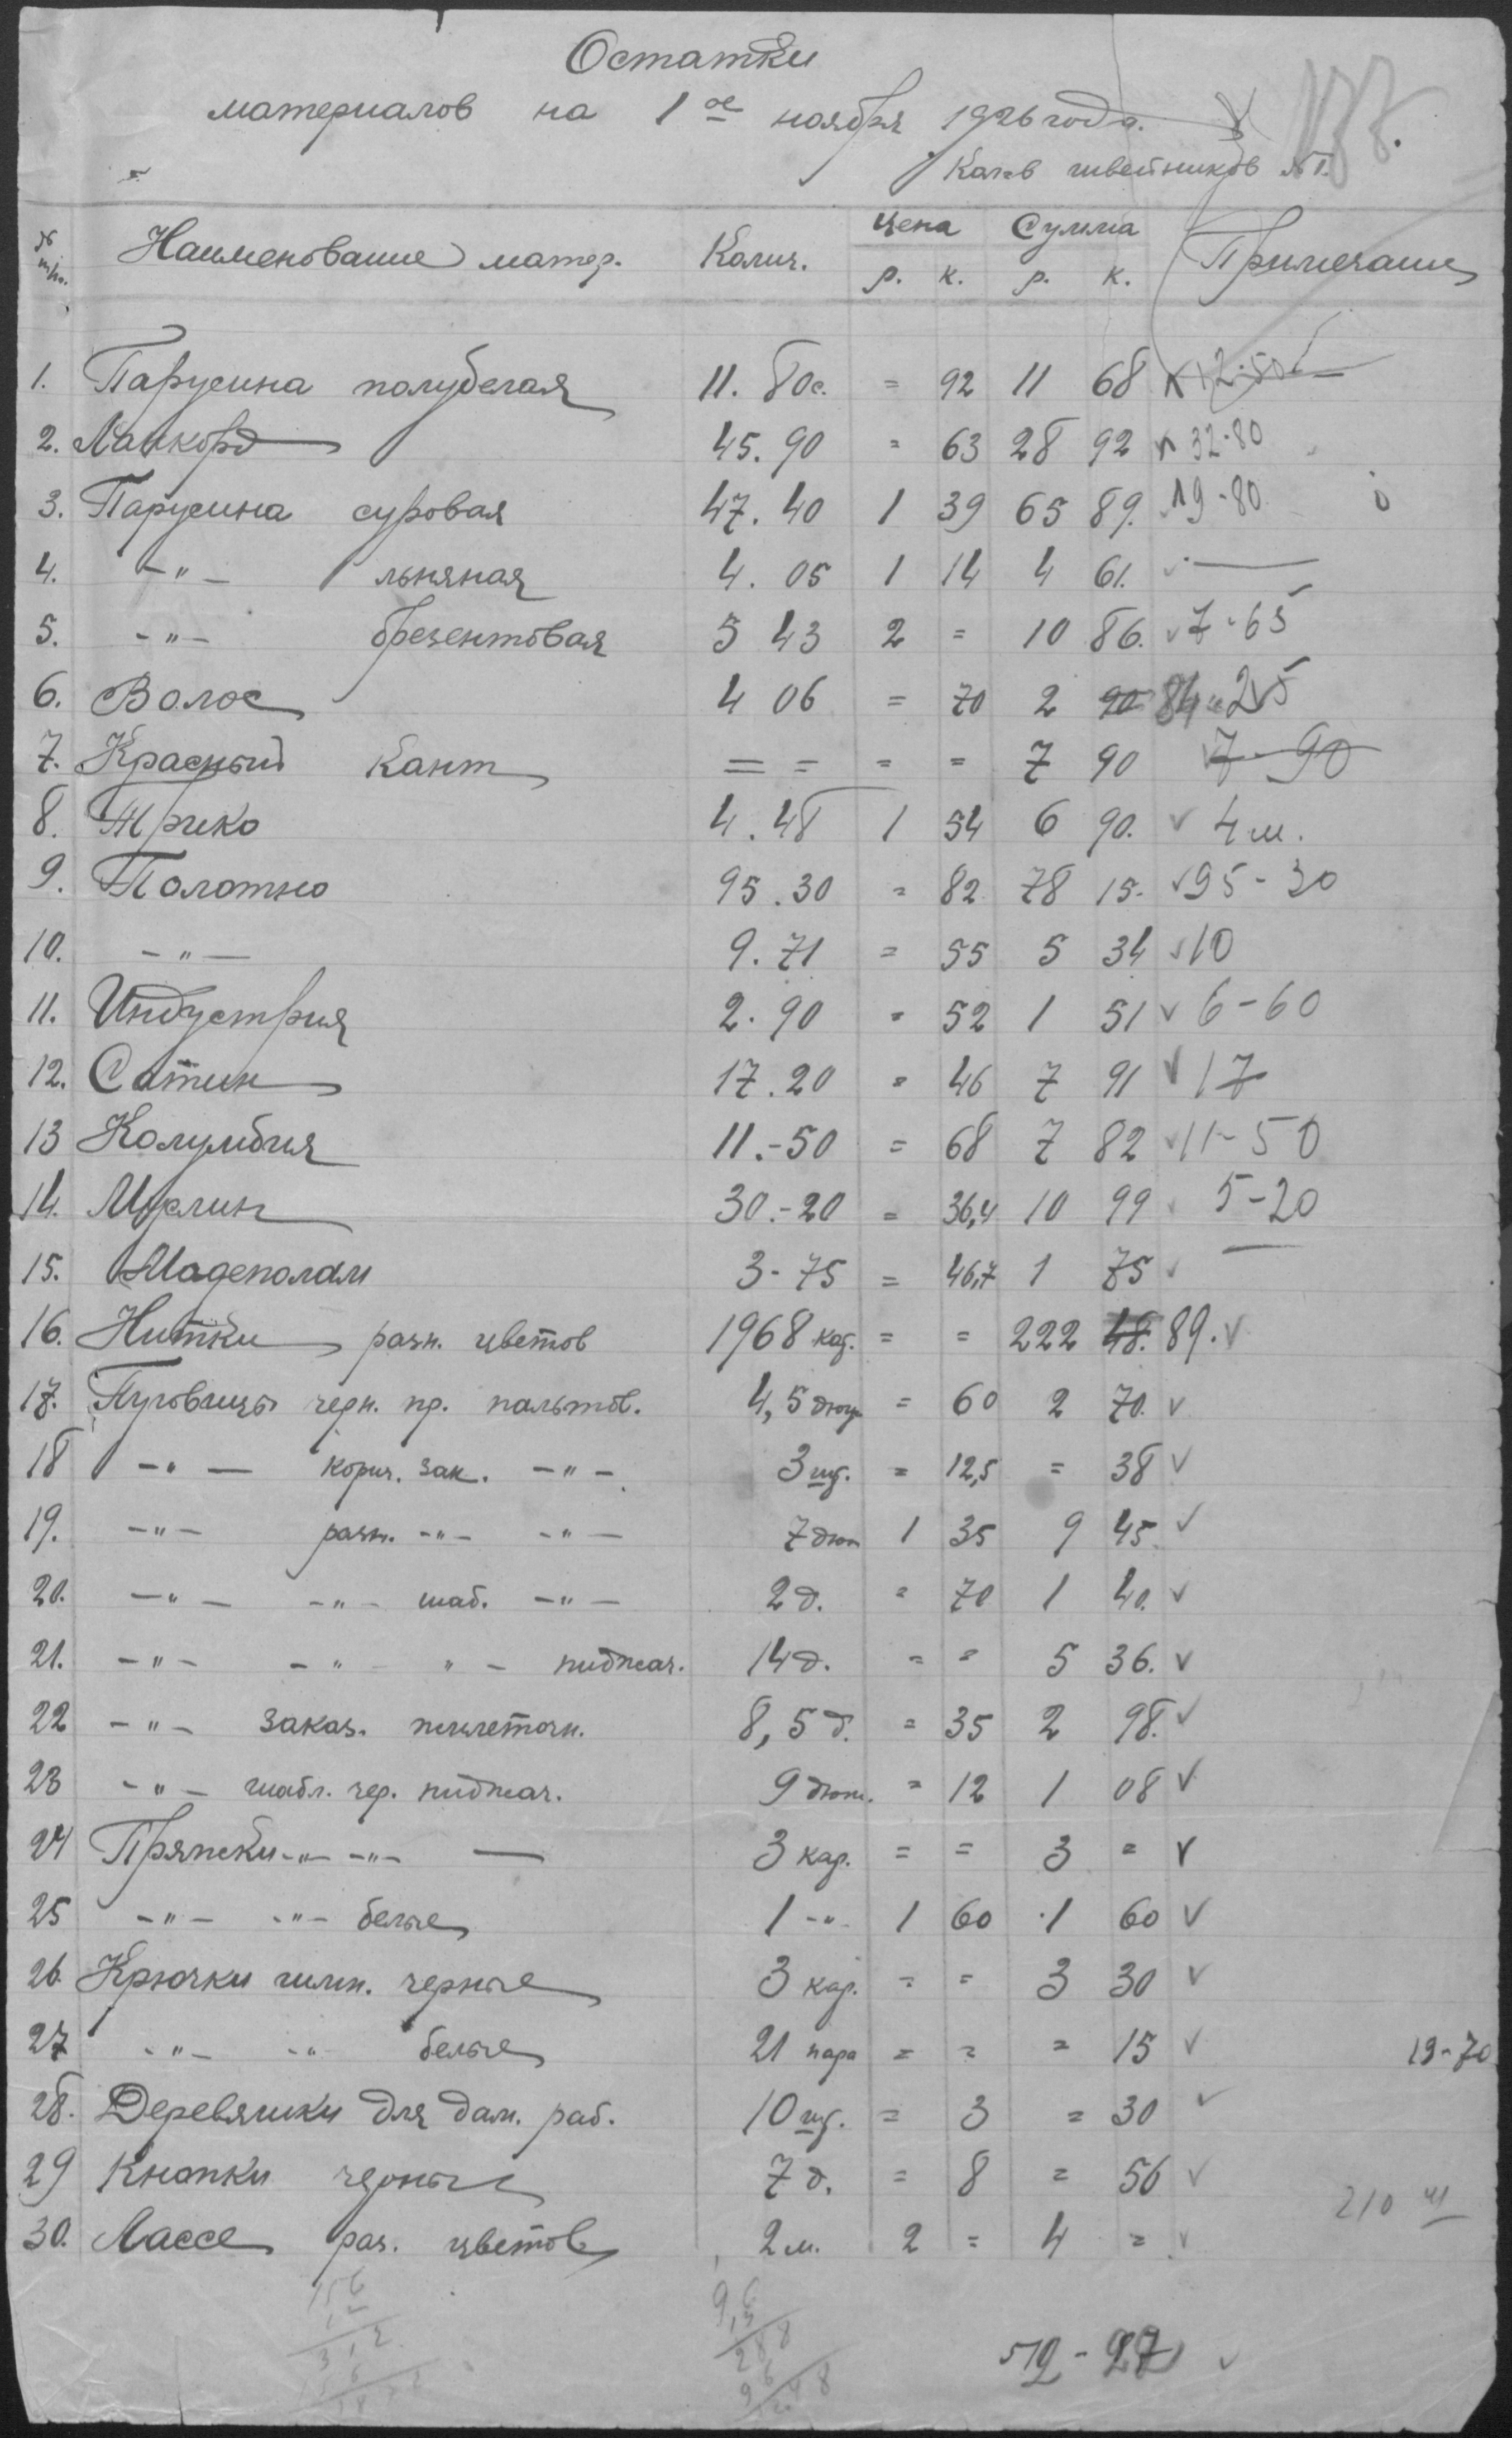 Остатки
материалов на 1ое ноября 1926 года.
швейников №1.
№ Наименование матер. Колич. Цена Сумма Примечание
р. к. р. к.
1. Парусина полубелая 11. 80с. = 92 11 68 12-50
2. Ланкорд 45. 90 = 63 28 92 32-80
3. Парусина суровая 47. 40 1 39 65 89. 19-80
4. -"- льняная 4. 05 1 14 4 61. ✓ —
5. -"- брезентовая 5 43 2 = 10 86. ✓ 7-65
6. Волос 4 06 = 70 2 90 84
7. Красный Кант = = = = 7 90 ✓ 7-90
8. Трико 4. 48 1 54 6 90. ✓ 4 м.
9. Полотно 95. 30 = 82 78 15. ✓ 95-30
10. -"- 9. 71 = 55 5 34 ✓ 10
11. Индустрия 2. 90 = 52 1 51 ✓ 6-60
12. Сатин 17. 20 = 46 7 91 ✓ 17
13 Колумбия 11.-50 = 68 7 82 ✓ 11-50
14. Муслин 30.-20 = 36,4 10 99 ✓ 5-20
15. Мадеполам 3-75 = 46,7 1 75 ✓ —
16. Нитки разн. цветов 1968 кат. = = 222 48. 89. ✓
17. Пуговицы черн. пр. пальтов. 4,5 дюж = 60 2 70. ✓
18 -"- корич. зак. -"- 3 шт. = 12,5 = 38 ✓
19. -"- разн. -"- -"- 7 дюж 1 35 9 45. ✓
20. -"- -"- шаб. -"- 2 д. = 70 1 40. ✓
21. -"- -"- "- пиджач. 14 д. = = 5 36. ✓
22 -"- заказ. жилеточн. 8,5 д. = 35 2 98. ✓
23 -"- шабл. чер. пиджач. 9 дюж. = 12 1 08 ✓
24 Пряжки -"- -"- — 3 кар. = = 3 = ✓
25 -"- -"- белые 1 -"- 1 60 1 60 ✓
26. Крючки гимн. черные 3 кар. = = 3 30 ✓
27 -"- -"- белые 21 пара = = = 15 ✓ 19-70
28. Деревяшки для дам. раб. 10 шт. = 3 = 30 ✓
29 Кнопки черные 7 д. = 8 = 56 ✓
210
30. Лассе раз. цветов 2 м. 2 = 4 = ✓
512-27 ✓